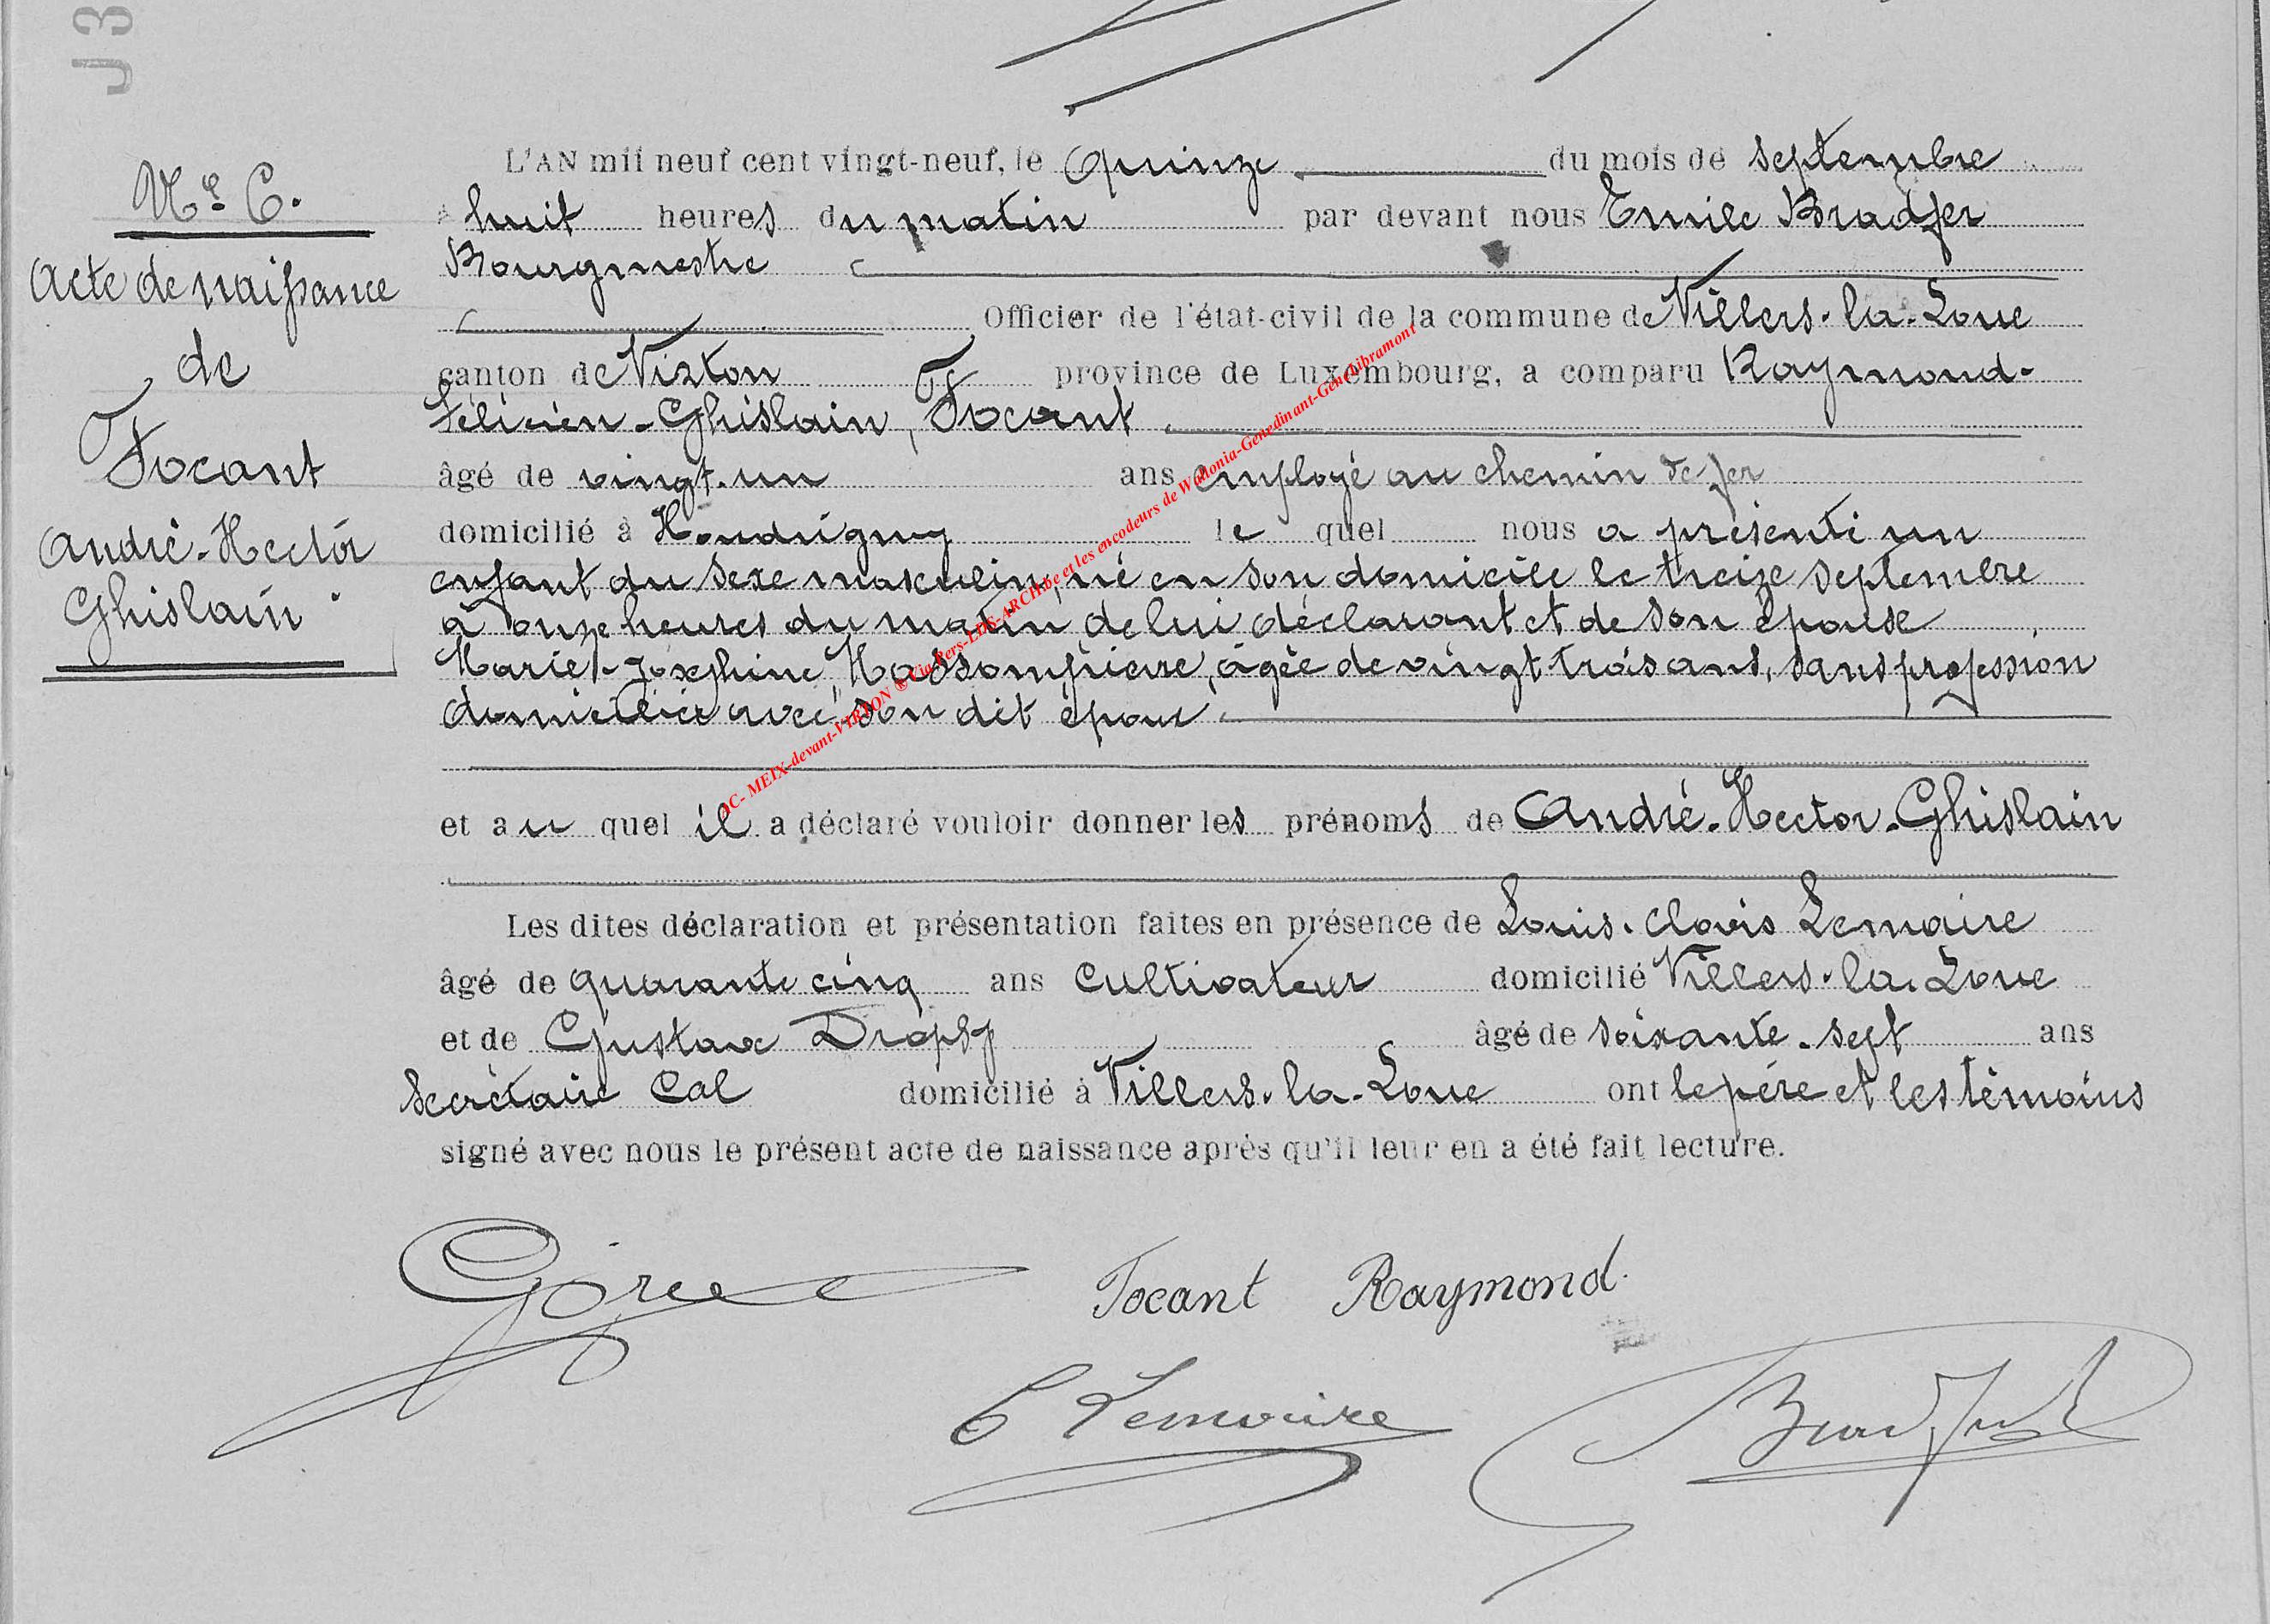 J 3
L'AN mil neuf cent vingt-neuf, le Quinze du mois de septembre
à huit heures du matin par devant nous Emile Bradfer
Bourgmestre
Officier de l'état-civil de la commune de Villers-la-Loue
canton de Virton province de Luxembourg, a comparu Raymond-
Félicien-Ghislain, Focant
âgé de vingt-un ans employé au chemin de fer
domicilié à Houdrigny lequel nous a présenté un
enfant du sexe masculin, né en son domicile le treize septembre
à onze heures du matin de lui déclarant et de son épouse
Marie-Joséphine Massompierre, âgée de vingt trois ans, sans profession
domiciliée avec son dit époux
et au quel il a déclaré vouloir donner les prénoms de André-Hector-Ghislain
Les dites déclaration et présentation faites en présence de Louis-Clovis Lemaire
âgé de quarante cinq ans cultivateur domicilié Villers-la-Loue
et de Gustave Dropsy âgé de soixante-sept ans
Secrétaire Cal domicilié à Villers-la-Loue ont le père et les témoins
signé avec nous le présent acte de naissance après qu'il leur en a été fait lecture.
Focant Raymond.
C Lemaire
Bradfer
Acte de naissance
de
Focant
André-Hector
Ghislain.
AC- MEIX-devant-VIRTON
et les encodeurs de Wallonia-Genedinant-Genelibramont